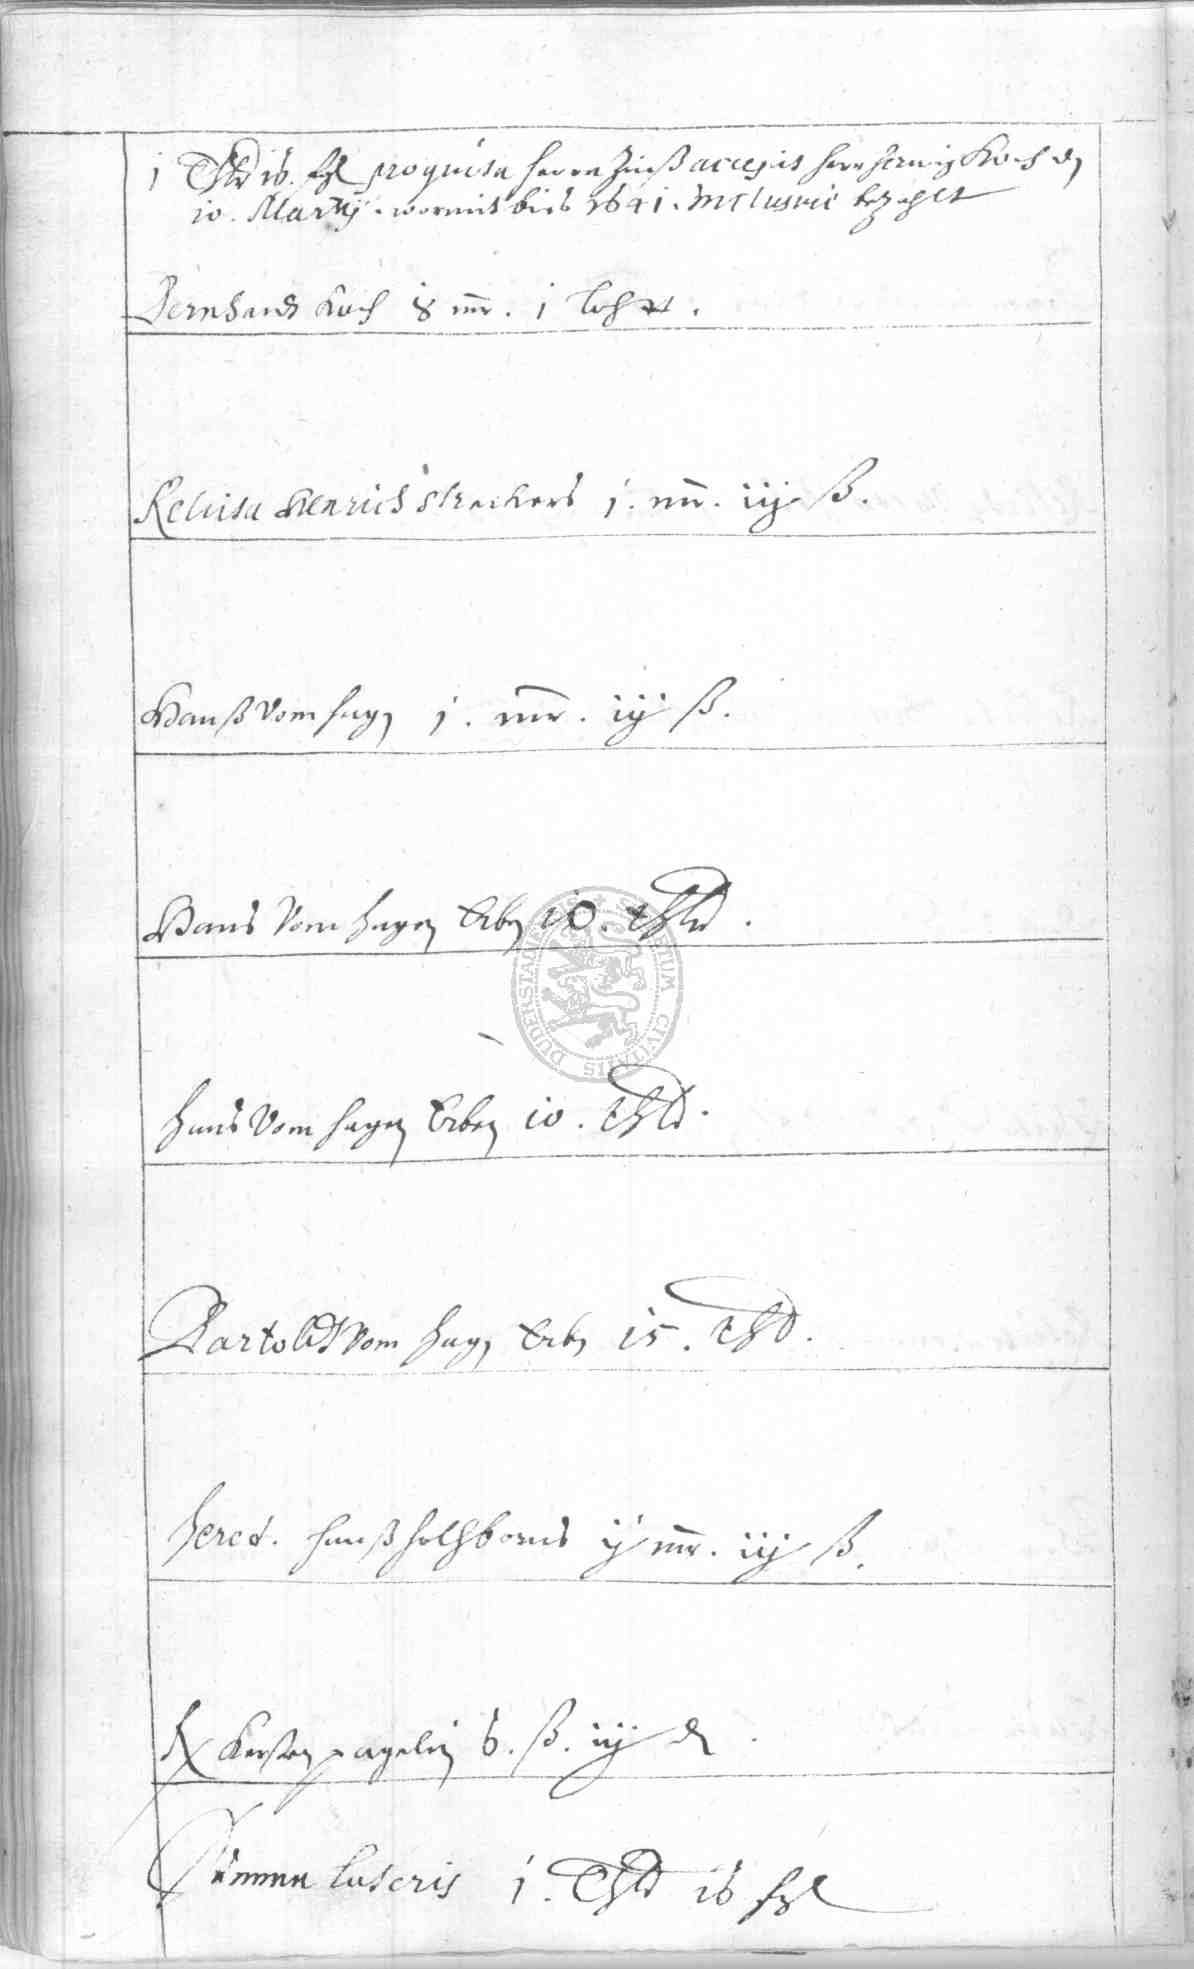 1 Thld 16. ßl pro quita herrn Zinß accepit herr herwig Koch d
10. Martij. wormit bis 1641. inclusive bezahlt
Bernhardt Koch 8 mr. 1 loht.
Relicta Henrich Streckers j. mr. iij ß.
Hanß vom hagen j. mr. iij ß.
Hans vom hagen Erben 10. thld.
hans vom hagen Erben 10. thld.
Bartoldt vom hagen Erben 15. thld.
hered. hanß holtzborns ij mr. iij ß.
Kersten pagelin 6. ß. iij d.
Summa lateris j. Thld 16 ßl
DUDERSTADENSIS SECRETUM CIVITATIS